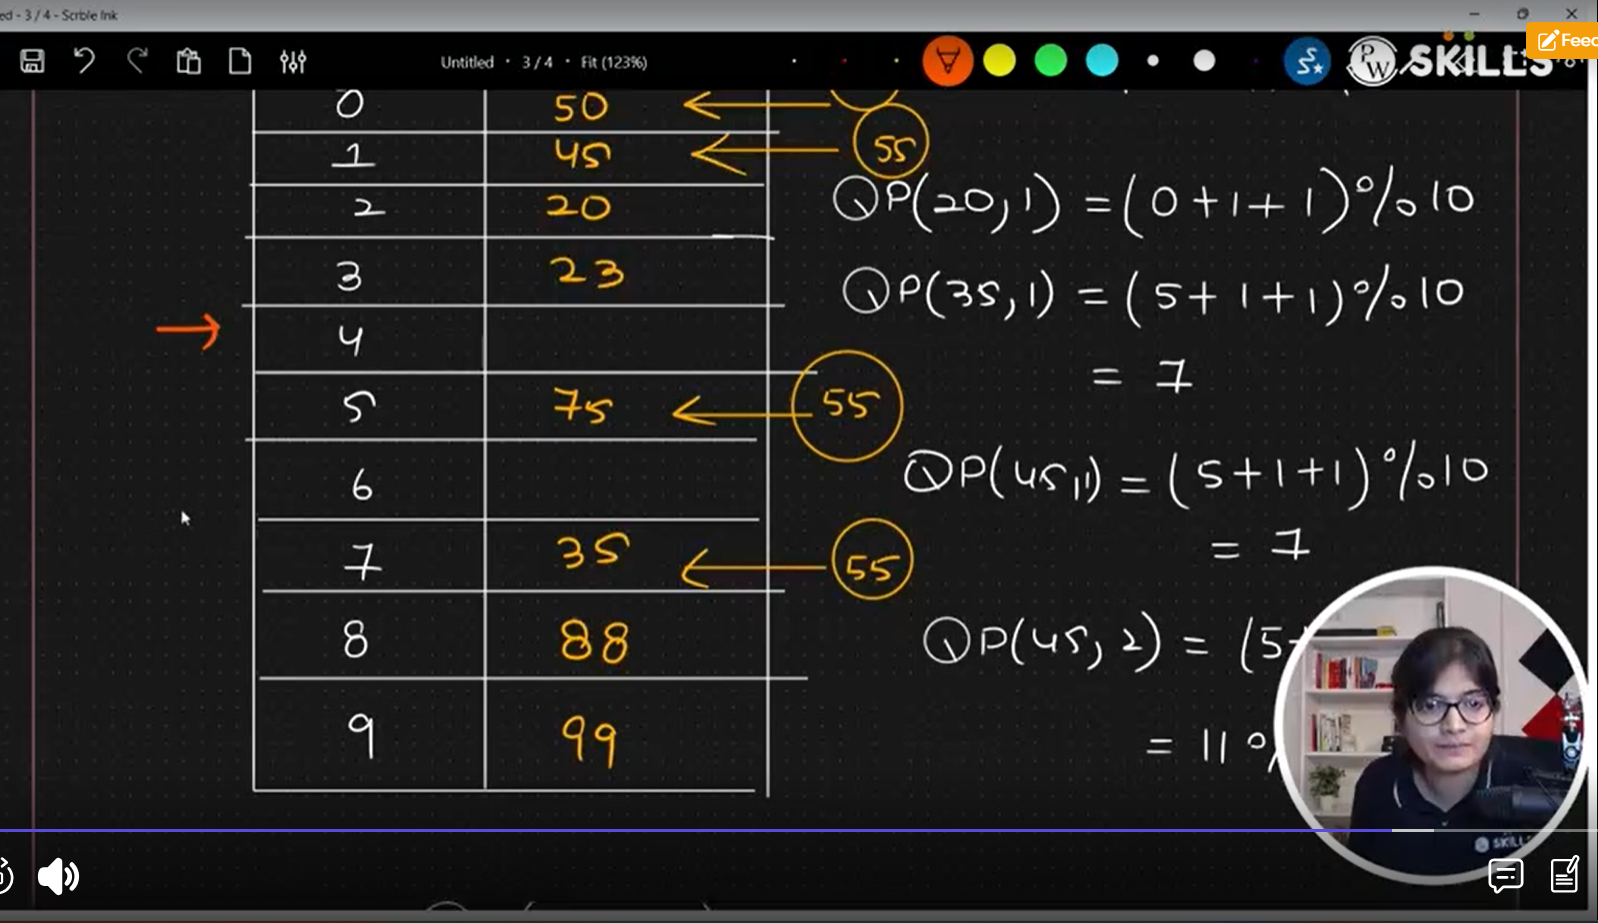 ed - 3 / 4 - Scrble Ink
Untitled • 3 / 4 • Fit (123%)
PW SKILLS
Feec
0 50
1 45 55
2 20
3 23
4
5 75 55
6
7 35 55
8 88
9 99
QP(20,1) = (0+1+1)%10
QP(35,1) = (5+1+1)%10
= 7
QP(45,1) = (5+1+1)%10
= 7
QP(45,2) = (5+
= 11%
SKILLS